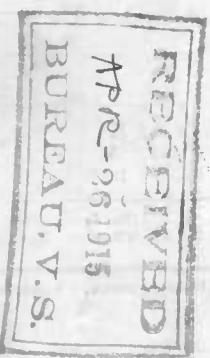 RECEIVED
APR - 26 1915
BUREAU. V. S.